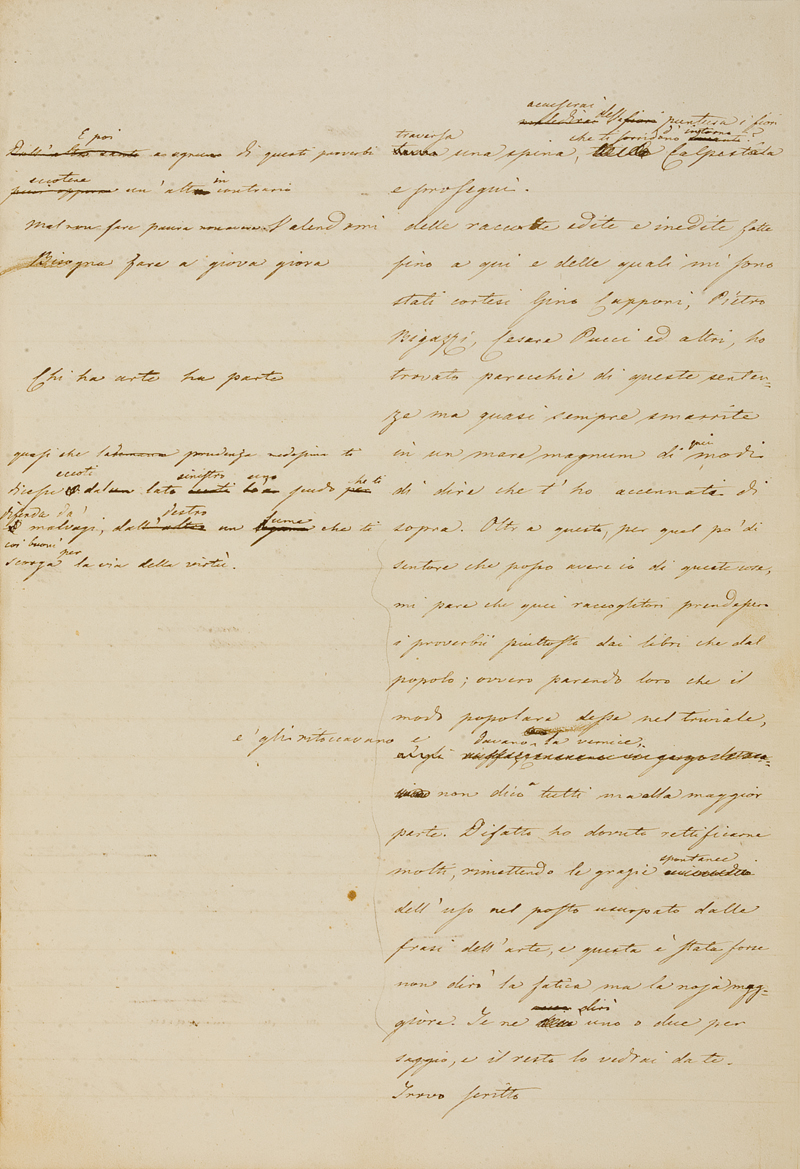 E poi
Dall'altro canto a ognuno di questi proverbi
eccotene in
puoi opporre un' altro contrario
Mal non fare paura non avere. Valendomi
Bisogna fare a giova giova
Chi ha arte ha parte
quasi che la prudenza medesima ti
eccoti sinistro ergo
dicesse dal lato scudo che ti
difenda da' destro lume
malvagi, dall'altro un che ti
coi buoni per
scorga la via della virtù.
e gli ritoccavano
accuserai della
puntura i fiori
traversa che ti sorridono d' intorno?
una spina, Calpestala
e prosegui.
delle raccolte edite e inedite fatte
fino a qui e delle quali mi sono
stati cortesi Gino Capponi, Pietro
Bigazzi, Cesare Pucci ed altri, ho
trovato parecchie di queste senten-
ze ma quasi sempre smarrite
quei
in un mare magnum di modi
di dire che t'ho accennati di
sopra. Oltr a questo, per quel po' di
sentore che posso avere io di queste cose,
mi pare che quei raccoglitori prendessero
i proverbii piuttosto dai libri che dal
popolo; ovvero parendo loro che il
modo popolare desse nel triviale,
e davano la vernice,
non dico a tutti ma alla maggior
parte. Difatto ho dovuto rettificarne
spontanee
molti, rimettendo le grazie
dell'uso nel posto usurpato dalle
frasi dell'arte, e questa è stata forse
non dirò la fatica ma la noja mag-
dirò
giore. Te ne uno o due per
saggio, e il resto lo vedrai da te.
Trovo scritto